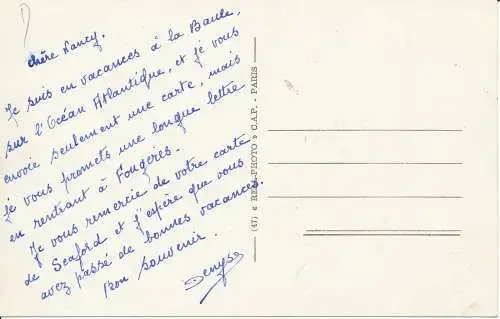 chère Nancy.
Je suis en vacances à la Baule,
sur l'Océan Atlantique, et je vous
envoie seulement une carte, mais
je vous promets une longue lettre
en rentrant à Fougères.
Je vous remercie de votre carte
de Seaford et j'espère que vous
avez passé de bonnes vacances.
Bon souvenir.
Denyse
(47) « REAL-PHOTO » C.A.P. - PARIS